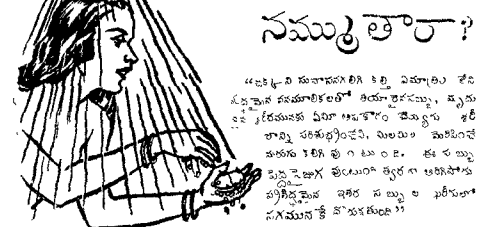 నమ్ముతారా?
"జక్కని సువాసనగలిగి కల్తీ ఏమాత్రం లేని
వనమూలికలతో తయారైనసబ్బు, మృదు
శరీరమునకు ఏమీ అపకారం చెయ్యగు శరీ
రాన్ని పరిశుభ్రంచేసి, మిలమిల మెరిపించే
నురుగు కలిగి వుంటుంది. ఈ సబ్బు
పెద్దసైజుగ వుంటుంది త్వరగా అరిగిపోదు
ప్రసిద్ధమైన ఇతర సబ్బుల ఖరీదులో
సగమునకే దొరుకతుంది"